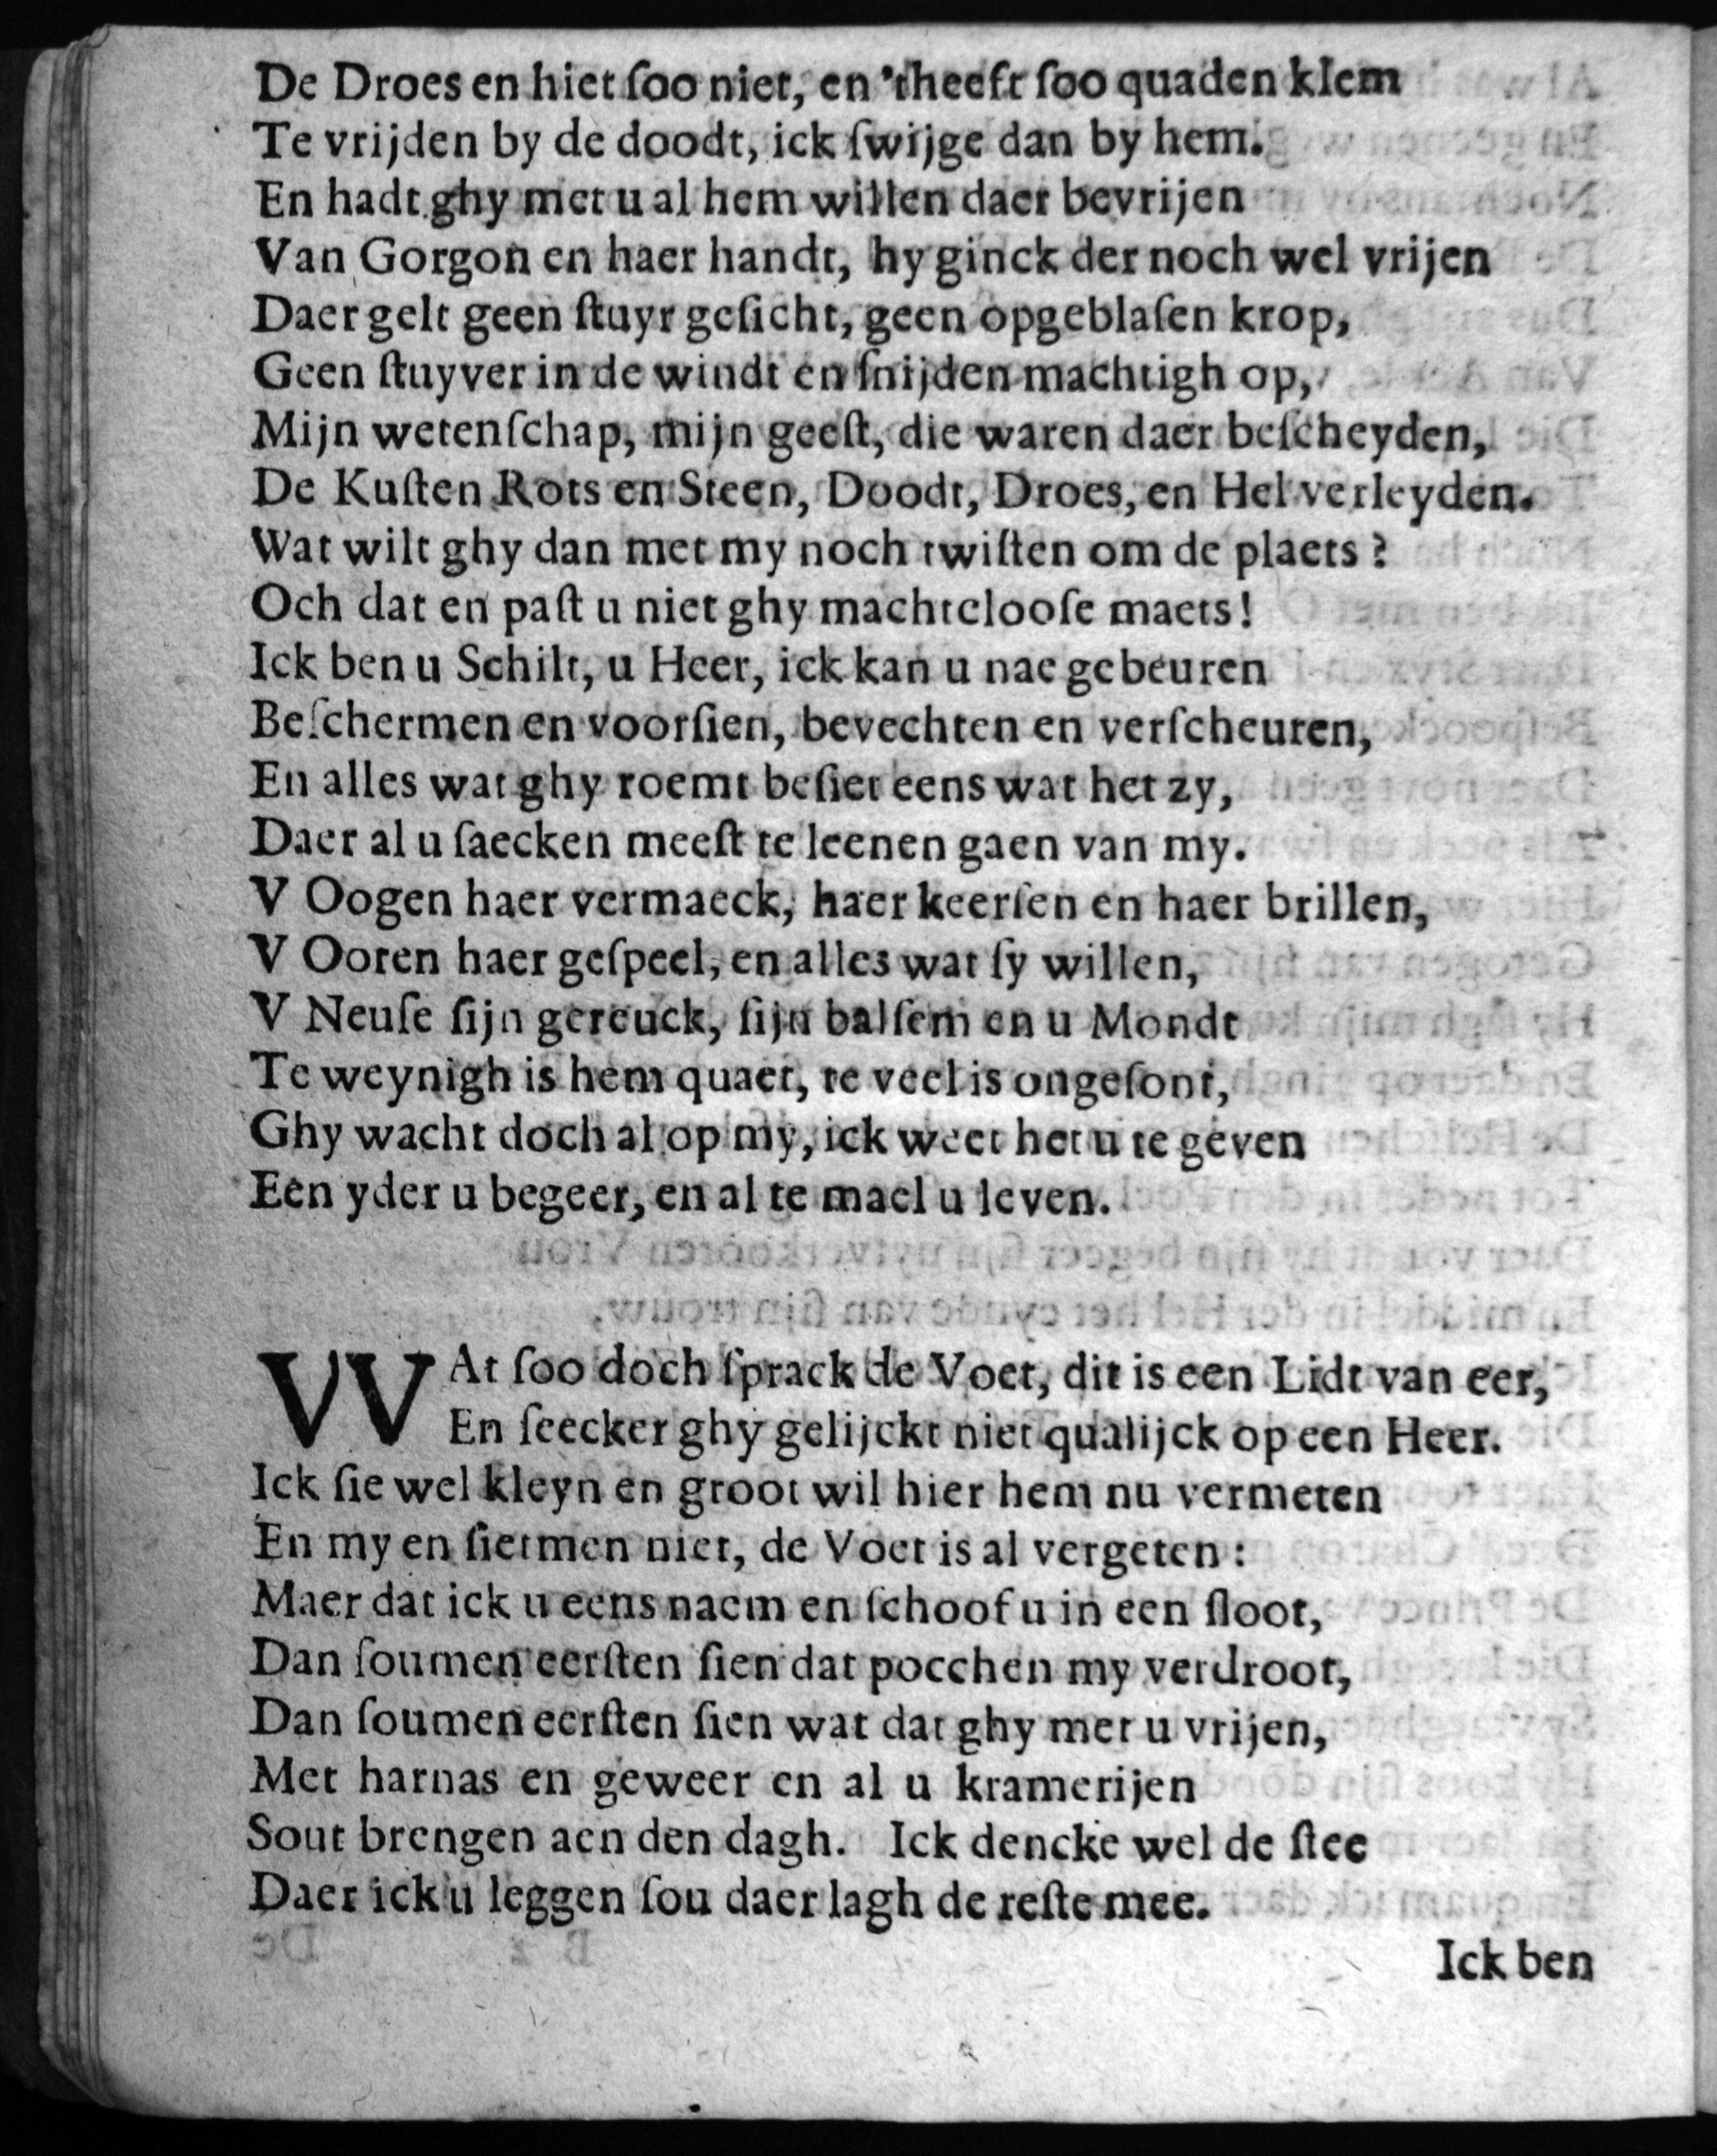 De Droes en hiet ſoo niet, en 'theeft ſoo quaden klem
Te vrijden by de doodt, ick ſwijge dan by hem.
En hadt ghy met u al hem willen daer bevrijen
Van Gorgon en haer handt, hy ginck der noch wel vrijen
Daer gelt geen ſtuyr geſicht, geen opgeblaſen krop,
Geen ſtuyver in de windt en ſnijden machtigh op,
Mijn wetenſchap, mijn geeſt, die waren daer beſcheyden,
De Kuſten Rots en Steen, Doodt, Droes, en Hel verleyden.
Wat wilt ghy dan met my noch twiſten om de plaets?
Och dat en paſt u niet ghy machteloofe maets!
Ick ben u Schilt, u Heer, ick kan u nae gebeuren
Beſchermen en voorſien, bevechten en verſcheuren,
En alles wat ghy roemt beſiet eens wat het zy,
Daer al u ſaecken meeſt te leenen gaen van my.
V Oogen haer vermaeck, haer keerſen en haer brillen,
V Ooren haer geſpeel, en alles wat ſy willen,
V Neuſe ſijn gereuck, ſijn balſem en u Mondt
Te weynigh is hem quaet, te veel is ongeſont,
Ghy wacht doch al op my, ick weet het u te geven
Een yder u begeer, en al te mael u leven.
WAt ſoo doch ſprack de Voet, dit is een Lidt van eer,
En ſeecker ghy gelijckt niet qualijck op een Heer.
Ick ſie wel kleyn en groot wil hier hem nu vermeten
En my en ſietmen niet, de Voet is al vergeten:
Maer dat ick u eens naem en ſchoof u in een ſloot,
Dan ſoumen eerſten ſien dat pocchen my verdroot,
Dan ſoumen eerſten ſien wat dat ghy met u vrijen,
Met harnas en geweer en al u kramerijen
Sout brengen aen den dagh. Ick dencke wel de ſtee
Daer ick u leggen ſou daer lagh de reſte mee.
Ick ben